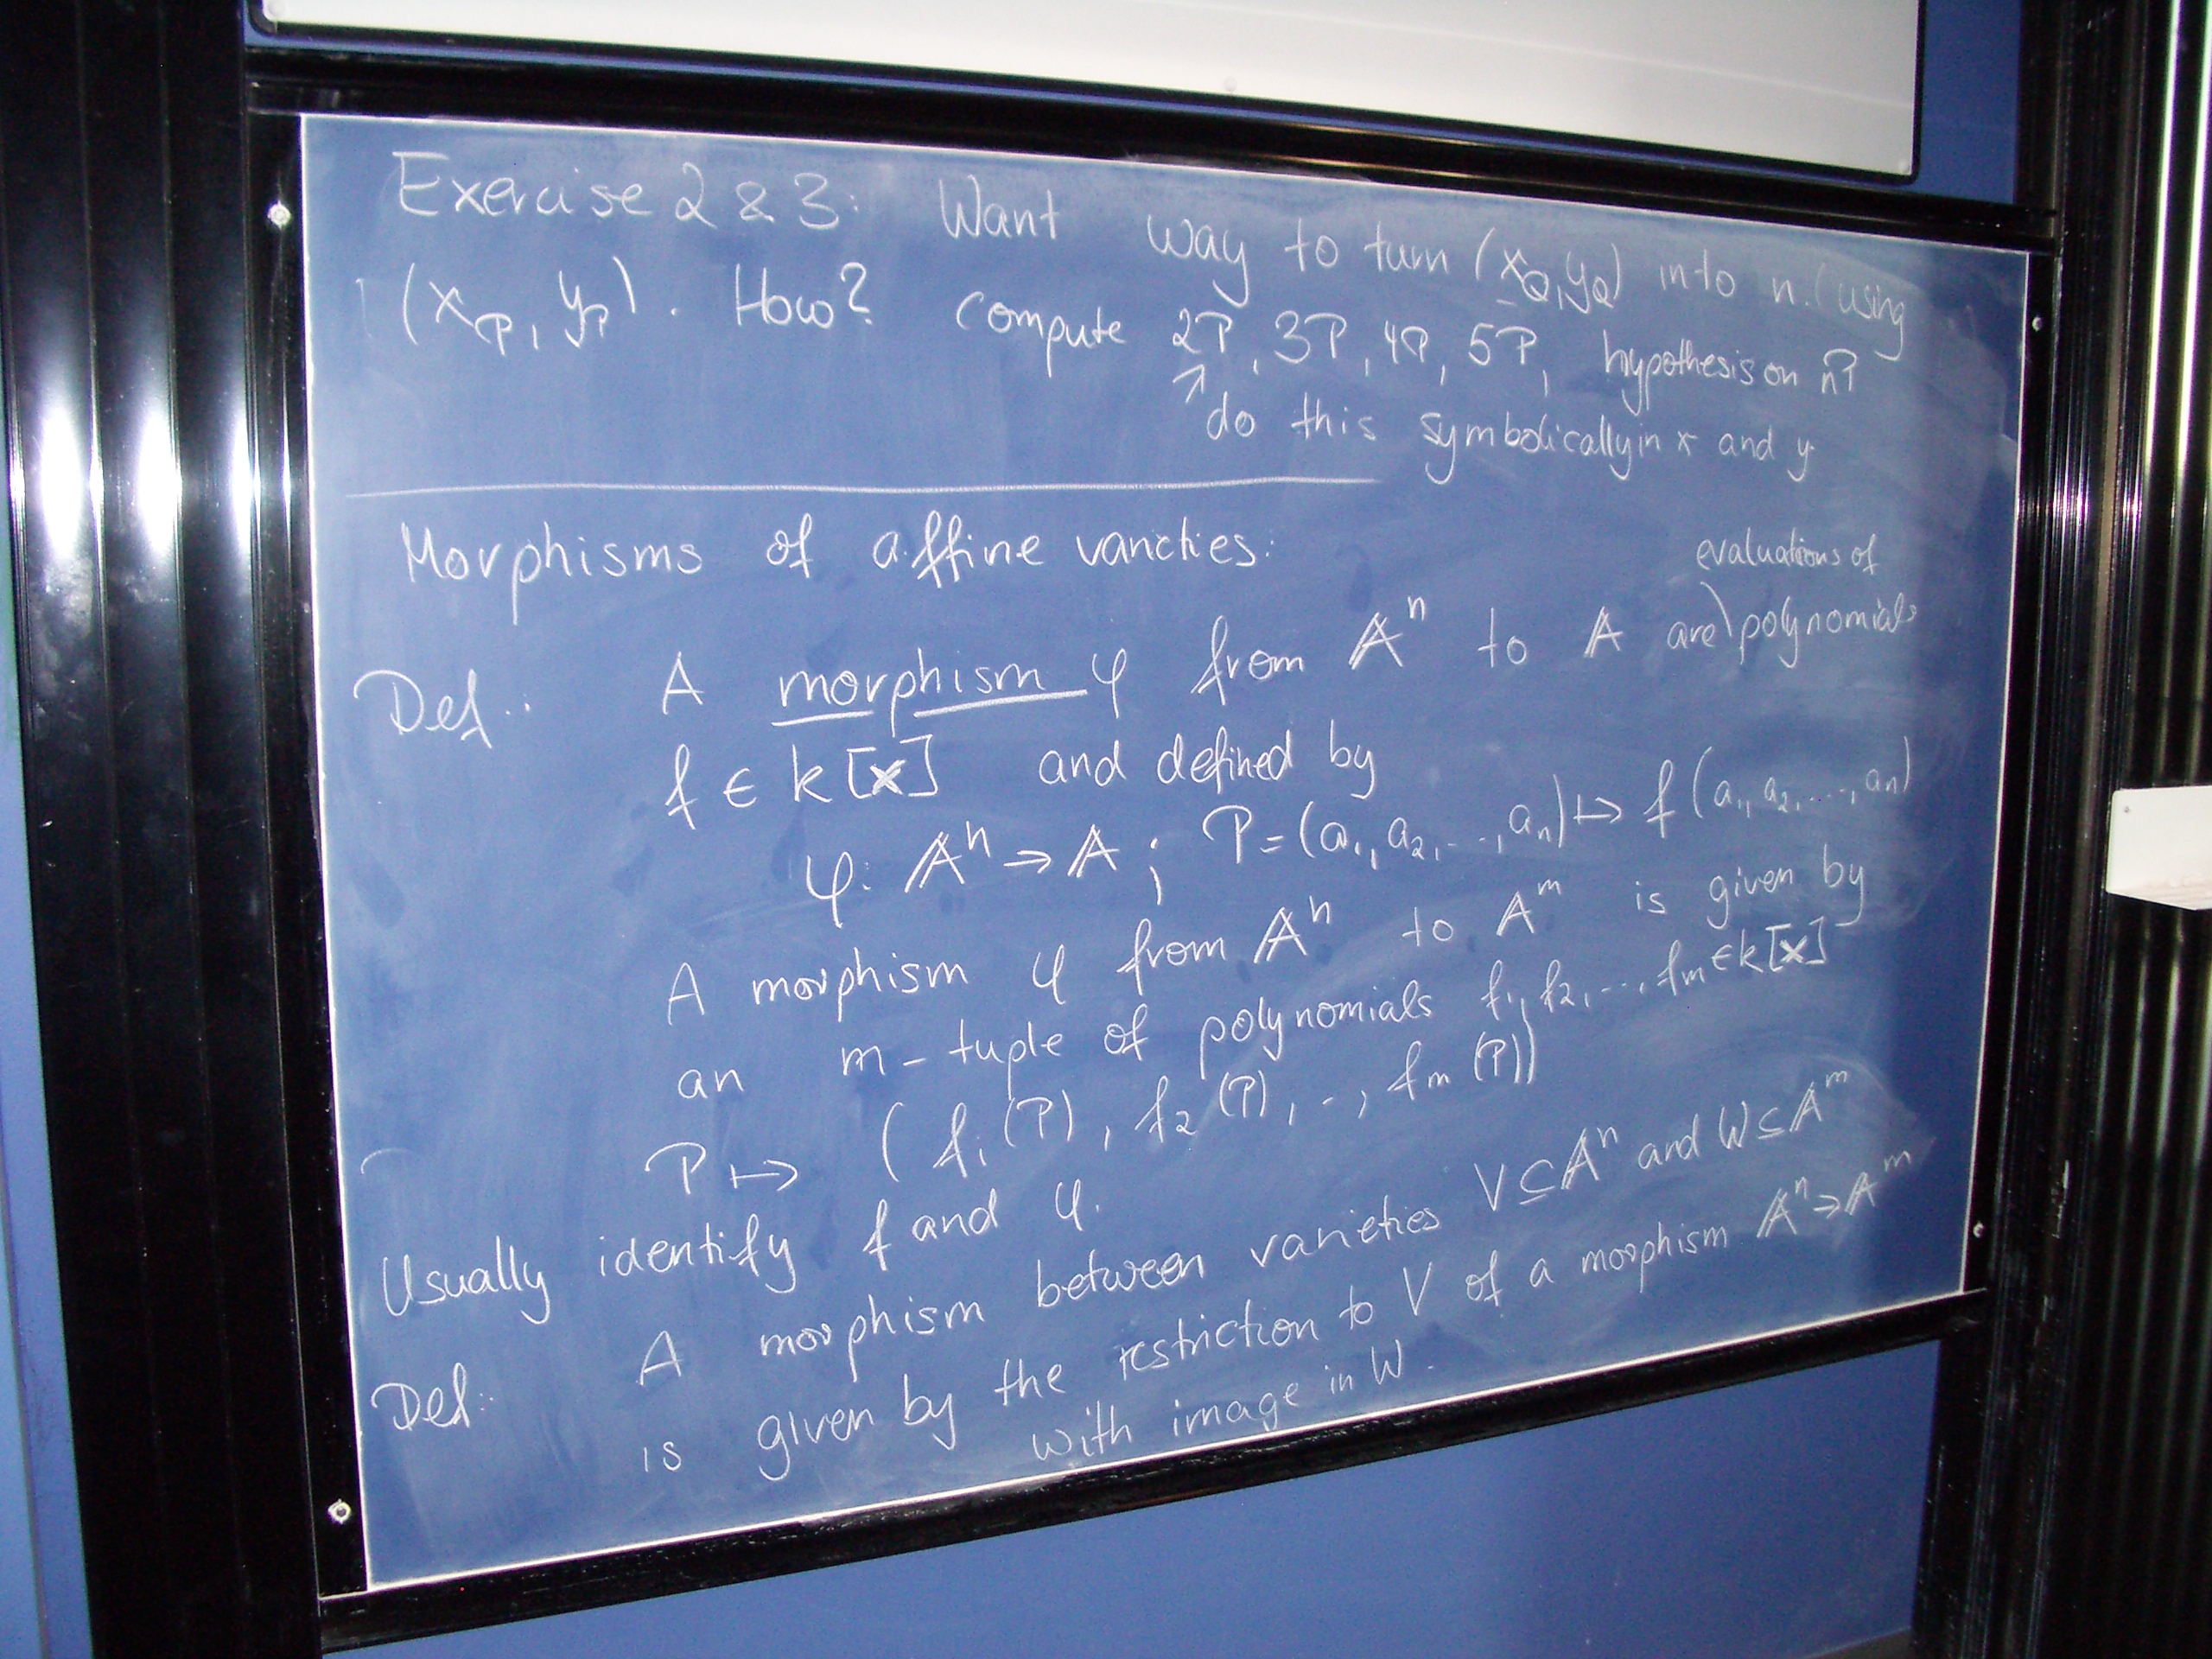 Exercise 2 & 3: Want way to turn (x_Q, y_Q) into n. (using
(x_P, y_P). How? compute 2P, 3P, 4P, 5P, hypothesis on nP
↗ do this symbolically in x and y
Morphisms of affine varieties:
evaluations of
Def.: A morphism φ from 𝔸^n to 𝔸 are) polynomials
f ∈ k[x] and defined by
φ: 𝔸^n → 𝔸 ; P = (a_1, a_2, ..., a_n) ↦ f(a_1, a_2, ..., a_n)
A morphism φ from 𝔸^n to 𝔸^m is given by
an m-tuple of polynomials f_1, f_2, ..., f_m ∈ k[x]
P ↦ (f_1(P), f_2(P), .., f_m(P))
Usually identify f and φ.
Def: A morphism between varieties V ⊆ 𝔸^n and W ⊆ 𝔸^m
is given by the restriction to V of a morphism 𝔸^n → 𝔸^m
with image in W.